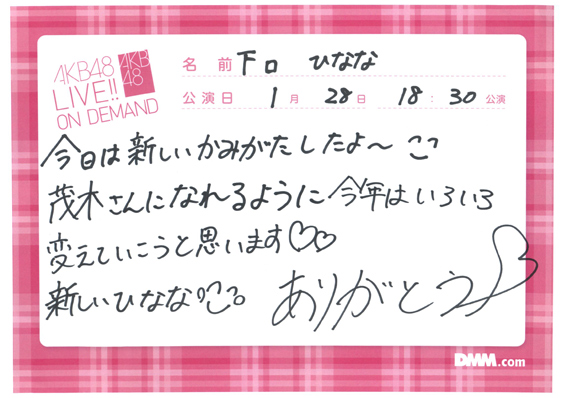 AKB48
LIVE!!
ON DEMAND
AKB
48
名 前 下口 ひなな
公演日 1月 28日 18:30公演
今日は新しいかみがたしたよ〜
茂木さんになれるように今年はいろいろ
変えていこうと思います♡♡
新しいひなな
ありがとう
DMM.com